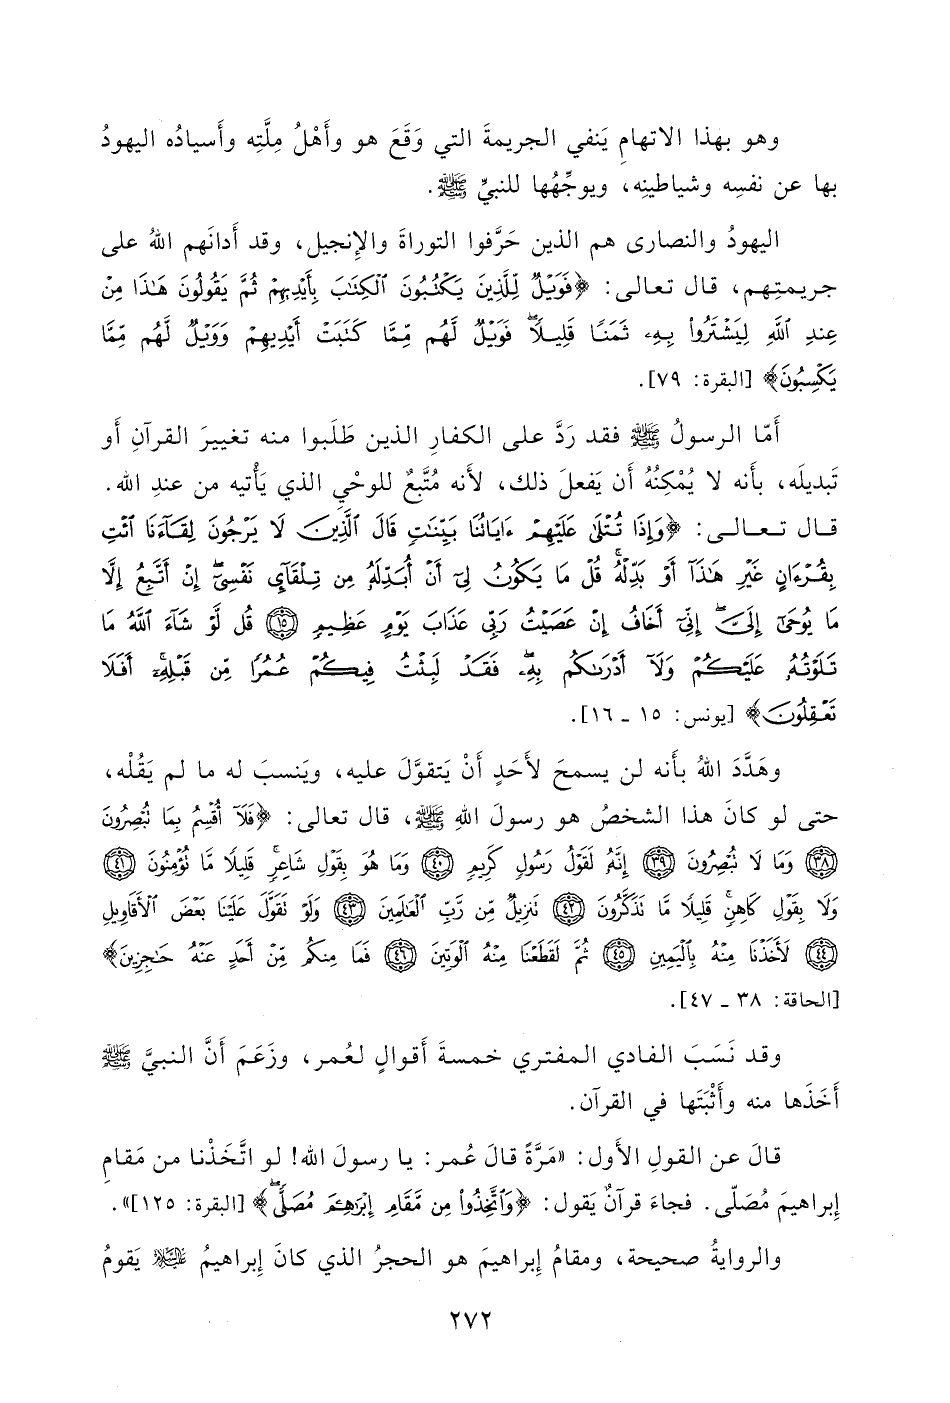 وهو بهذا الاتهامِ يَنفي الجريمةَ التي وَقَعَ هو وأَهْلُ مِلَّتِه وأَسيادُه اليهودُ
بها عن نفسِه وشياطينِه، ويوجِّهُها للنبيِّ ﷺ.
اليهودُ والنصارى هم الذين حَرَّفوا التوراةَ والإِنجيل، وقد أَدانَهم اللهُ على
جريمتِهم، قال تعالى: ﴿فَوَيْلٌ لِّلَّذِينَ يَكْتُبُونَ ٱلْكِتَٰبَ بِأَيْدِيهِمْ ثُمَّ يَقُولُونَ هَٰذَا مِنْ
عِندِ ٱللَّهِ لِيَشْتَرُوا۟ بِهِۦ ثَمَنًا قَلِيلًاۖ فَوَيْلٌ لَّهُم مِّمَّا كَتَبَتْ أَيْدِيهِمْ وَوَيْلٌ لَّهُم مِّمَّا
يَكْسِبُونَ﴾ [البقرة: ٧٩].
أَمّا الرسولُ ﷺ فقد رَدَّ على الكفارِ الذين طَلَبوا منه تغييرَ القرآنِ أَو
تَبديلَه، بأَنه لا يُمْكِنُهُ أَن يَفعلَ ذلك، لأَنه مُتَّبِعٌ للوحْيِ الذي يَأْتيه من عندِ الله.
قال تعالى: ﴿وَإِذَا تُتْلَىٰ عَلَيْهِمْ ءَايَاتُنَا بَيِّنَٰتٍ قَالَ ٱلَّذِينَ لَا يَرْجُونَ لِقَآءَنَا ٱئْتِ
بِقُرْءَانٍ غَيْرِ هَٰذَآ أَوْ بَدِّلْهُۚ قُلْ مَا يَكُونُ لِىٓ أَنْ أُبَدِّلَهُۥ مِن تِلْقَآئِ نَفْسِىٓۖ إِنْ أَتَّبِعُ إِلَّا
مَا يُوحَىٰٓ إِلَىَّۖ إِنِّىٓ أَخَافُ إِنْ عَصَيْتُ رَبِّى عَذَابَ يَوْمٍ عَظِيمٍ ١٥ قُل لَّوْ شَآءَ ٱللَّهُ مَا
تَلَوْتُهُۥ عَلَيْكُمْ وَلَآ أَدْرَىٰكُم بِهِۦۖ فَقَدْ لَبِثْتُ فِيكُمْ عُمُرًا مِّن قَبْلِهِۦٓۚ أَفَلَا
تَعْقِلُونَ﴾ [يونس: ١٥ - ١٦].
وهَدَّدَ اللهُ بأَنه لن يسمحَ لأَحَدٍ أَنْ يَتقوَّلَ عليه، ويَنسبَ له ما لم يَقُلْه،
حتى لو كانَ هذا الشخصُ هو رسولَ اللهِ ﷺ، قال تعالى: ﴿فَلَآ أُقْسِمُ بِمَا تُبْصِرُونَ
٣٨ وَمَا لَا تُبْصِرُونَ ٣٩ إِنَّهُۥ لَقَوْلُ رَسُولٍ كَرِيمٍ ٤٠ وَمَا هُوَ بِقَوْلِ شَاعِرٍۚ قَلِيلًا مَّا تُؤْمِنُونَ ٤١
وَلَا بِقَوْلِ كَاهِنٍۚ قَلِيلًا مَّا تَذَكَّرُونَ ٤٢ تَنزِيلٌ مِّن رَّبِّ ٱلْعَٰلَمِينَ ٤٣ وَلَوْ تَقَوَّلَ عَلَيْنَا بَعْضَ ٱلْأَقَاوِيلِ
٤٤ لَأَخَذْنَا مِنْهُ بِٱلْيَمِينِ ٤٥ ثُمَّ لَقَطَعْنَا مِنْهُ ٱلْوَتِينَ ٤٦ فَمَا مِنكُم مِّنْ أَحَدٍ عَنْهُ حَٰجِزِينَ﴾
[الحاقة: ٣٨ - ٤٧].
وقد نَسَبَ الفادي المفتري خمسةَ أَقوالٍ لعُمر، وزَعَمَ أَنَّ النبيَّ ﷺ
أَخَذَها منه وأَثْبَتَها في القرآن.
قالَ عن القولِ الأَول: «مَرَّةً قالَ عُمر: يا رسولَ الله! لو اتَّخَذْنا من مَقامِ
إِبراهيمَ مُصَلّى. فجاءَ قرآنٌ يَقول: ﴿وَٱتَّخِذُوا۟ مِن مَّقَامِ إِبْرَٰهِۦمَ مُصَلًّىۖ﴾ [البقرة: ١٢٥]».
والروايةُ صحيحة، ومقامُ إِبراهيمَ هو الحجرُ الذي كانَ إِبراهيمُ عليه السلام يَقومُ
٢٧٢